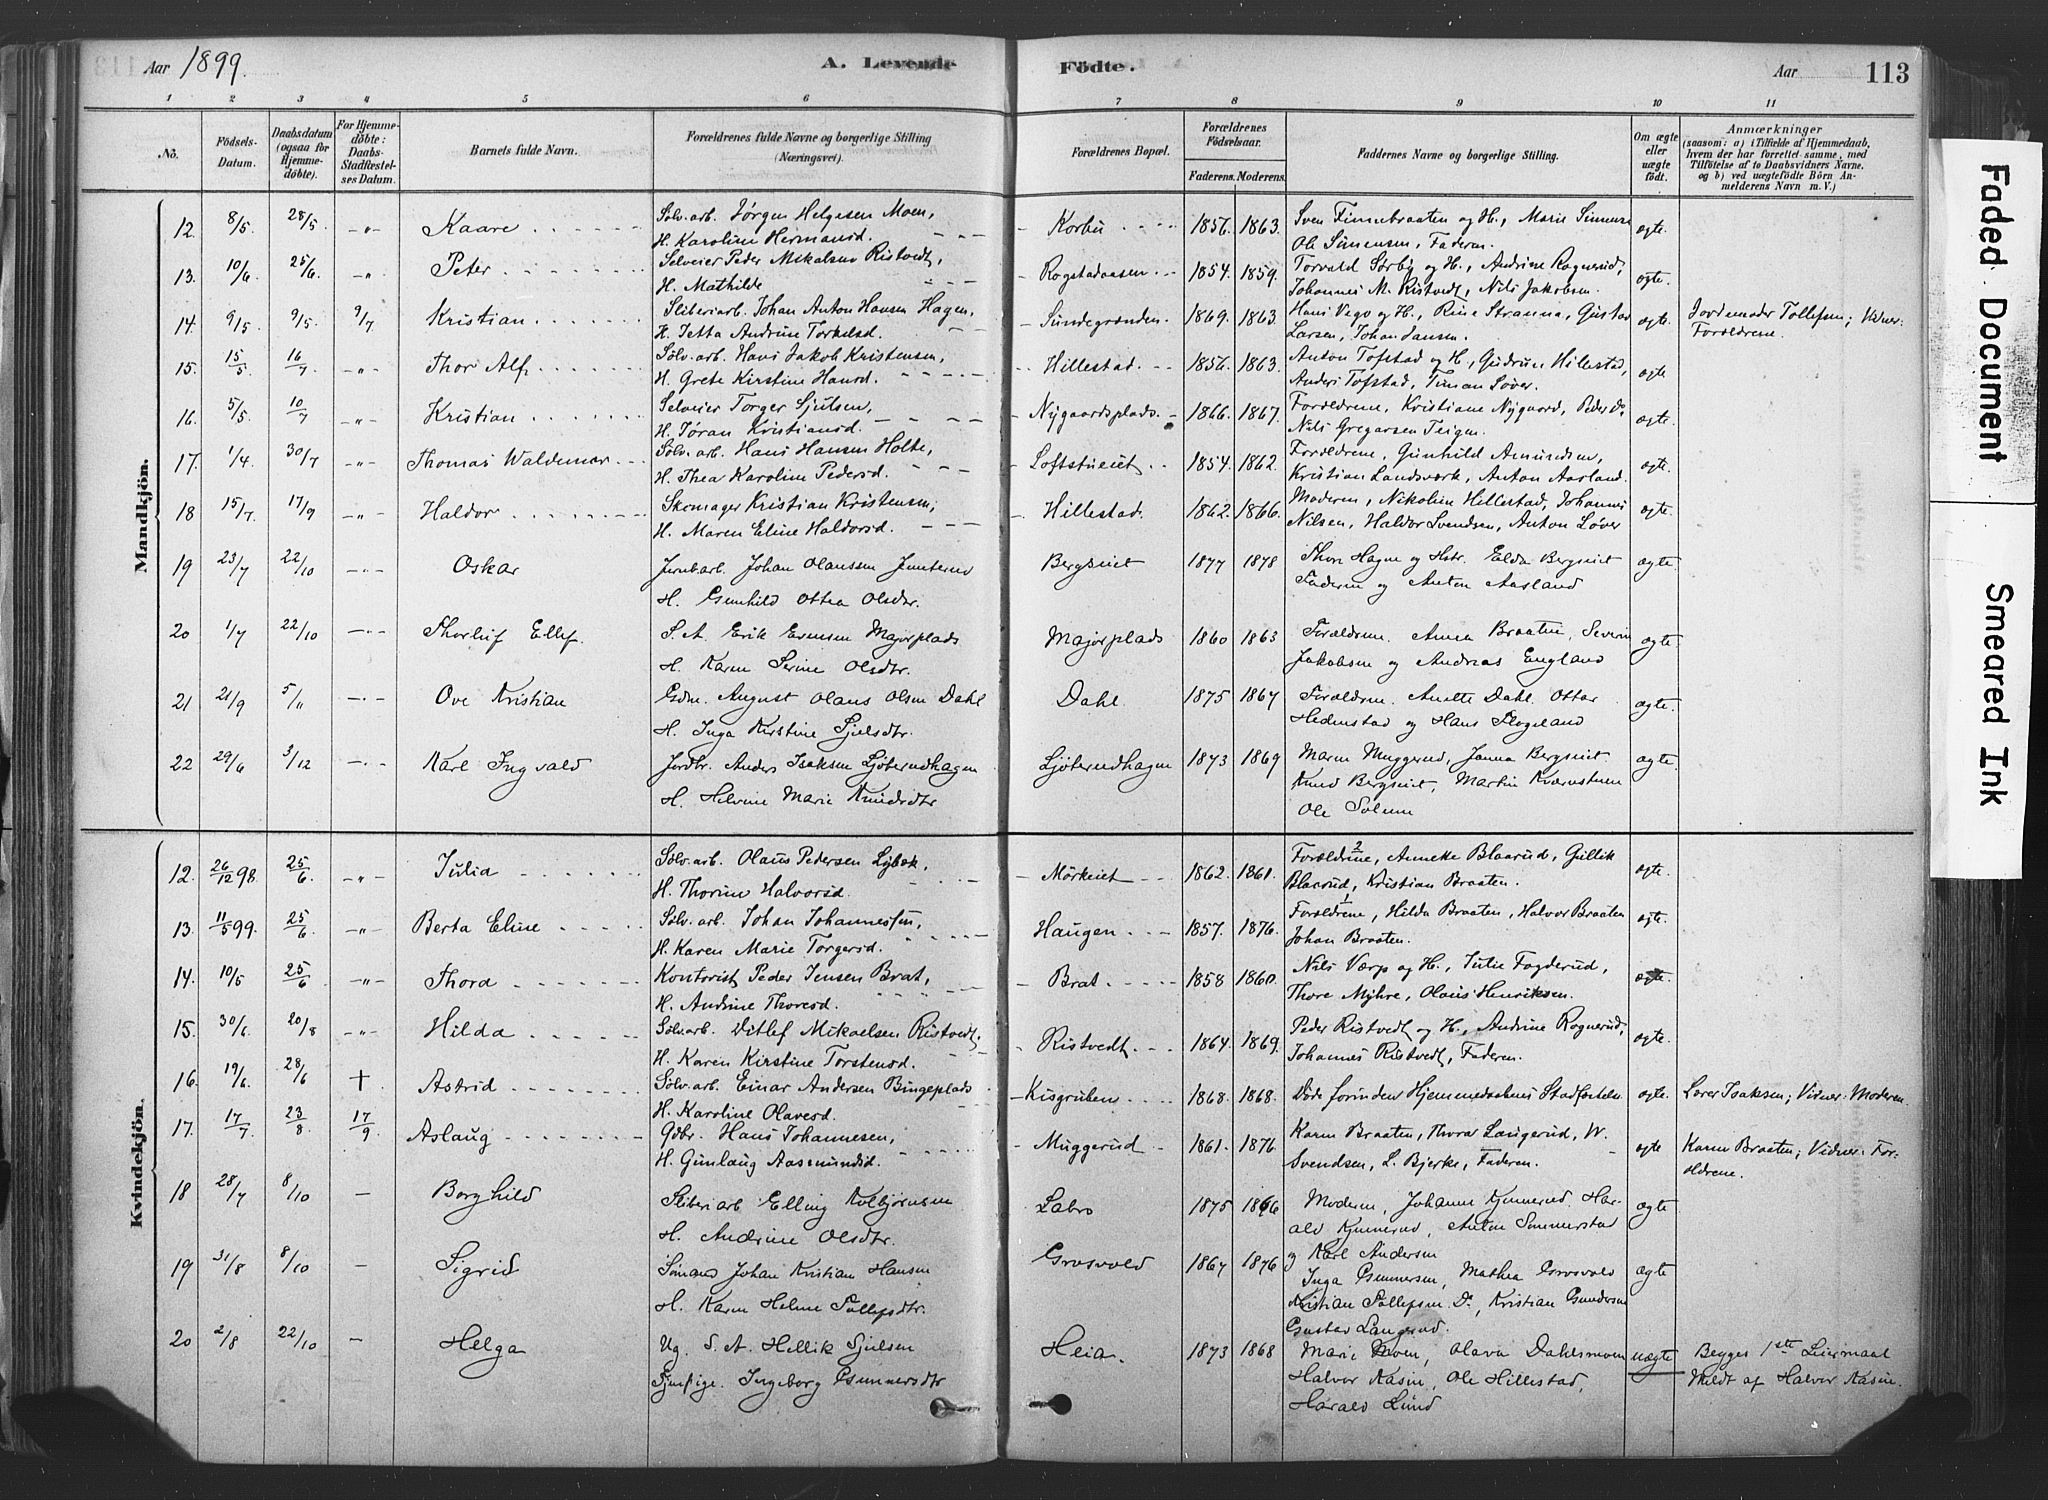 Aar 1899.
A. Levende Födte.
Aar
113
1 2 3 4 5 6 7 8 9 10 11
No.
Födsels-Datum.
Daabsdatum (ogsaa for Hjemmedöbte).
For Hjemmedöbte: Daabs-Stadfæstelses Datum.
Barnets fulde Navn.
Forældrenes fulde Navne og borgerlige Stilling (Næringsvei).
Forældrenes Bopæl.
Forældrenes Födselsaar.
Faderens. Moderens.
Faddernes Navne og borgerlige Stilling.
Om ægte eller uægte födt.
Anmærkninger
(saasom: a) i Tilfælde af Hjemmedaab, hvem der har forrettet samme, med Tilföielse af to Daabsvidners Navne, og b) ved uægtefödte Börn Anmelderens Navn m. V.)
Mandkjön.
12. 8/5. 28/5 -"- Kaare Sølv.arb. Jørgen Helgesen Moen, Korbu 1856. 1863. Sven Finnebraaten og H., Marie Simensen ægte.
H. Karoline Hermansd. Ole Simensen, Faderen.
13. 10/6. 25/6. -"- Peter Selveier Peder Mikalsen Ristvedt, Rogstadaasen 1854. 1859. Torvald Sørby og H., Andrine Rognerud, ægte.
H. Mathilde Johannes M. Ristvedt, Nils Jakobsen.
14. 9/5. 9/5. 9/7 Kristian Sliberiarb. Johan Anton Hansen Hagen, Sundegrænden 1869. 1863. Hans Vego og H., Rine Stranna, Gustav ægte. Jordemoder Tollefsen; Vidner:
H. Jetta Andrine Torkelsd. Larsen, Johan Jansen. Forældrene.
15. 15/5. 16/7 -"- Thor Alf Sølv.arb. Hans Jakob Kristensen, Hillestad 1856. 1863. Anton Tofstad og H., Gudrun Hillestad, ægte
H. Grete Kirstine Hansd. Anders Tofstad, Timan Løver.
16. 5/5. 10/7 -"- Kristian Selveier Torger Sjulsen, Nygaardsplads. 1866. 1867. Forældrene, Kristiane Nygaard, Peder Do, ægte.
H. Jøran Kristiansd. Nils Gregarsen Teigen.
17. 1/4. 30/7 -"- Thomas Waldemar Sølv.arb. Hans Hansen Holte, Loftstueiet 1854. 1862. Forældrene, Gunhild Amundsen, ægte.
H. Thea Karoline Pedersd. Kristian Landsværk, Anton Aasland.
18 15/7. 17/9 -"- Haldor Skomager Kristian Kristensen, Hillestad. 1862. 1866. Moderen, Nikoline Hillestad, Johannes ægte.
H. Maren Eline Haldorsd. Nilsen, Haldor Svendsen, Anton Løver
19 23/7 22/10 -"- Oskar Jernb.arb. Johan Olaussen Bergseiet 1877 1878 Thor Hagen og Hstr. Elda Bergseiet ægte.
H. Gunhild Ottea Olsdtr. Faderen og Anton Aasland
20 1/7 22/10 -"- Thorleif Ellef S. A. Erik Evensen Majorplads Majorplads 1860 1863 Forældrene. Anna Braaten, Severin ægte.
H. Karen Serine Olsdtr. Jakobsen og Andreas England
21 21/9 5/11 -"- Ove Kristian Gdm. August Olaus Olsen Dahl Dahl 1875 1867 Forældrene. Anette Dahl. Ottar ægte.
H. Inga Kirstine Sjulsdtr. Hedenstad og Hans Skogeland
22 29/6 3/12 -"- Karl Ingvald Jordbr. Anders Isaksen Ljøterudhagen Ljøterudhagen 1873 1869 Maren Muggerud, Janna Bergseiet ægte.
H. Helvine Marie Knudsdtr Knud Bergseiet, Martin Kværnstuen
Ole Solum
Kvindekjön.
12. 26/12 98. 25/6. -"- Julia Sølv.arb. Olaus Pedersen Lybæk, Mørkeiet 1862. 1861. Forældrene, Anneke Blaarud, Gullik ægte.
H. Thorine Halvorsd. Blaarud, Kristian Braaten.
13. 11/5 99. 25/6 -"- Berta Eline Sølv.arb. Johan Johannessen, Haugen 1857. 1876. Forældrene, Hilda Braaten, Halvor Braaten ægte.
H. Karen Marie Torgersd. Johan Braaten.
14. 10/5 25/6 -"- Thora Kontorist Peder Jensen Brat, Brat 1858 1860. Nils Værp og H., Julie Fogderud, ægte.
H. Andrine Thoresd. Thore Myhre, Olaus Henriksen.
15. 30/6. 20/8 -"- Hilda Sølv.arb. Ditlef Mikaelsen Ristvedt, Ristvedt 1864. 1869. Peder Ristvedt og H., Andrine Rognerud, ægte.
H. Karen Kirstine Torstensd. Johannes Ristvedt, Faderen.
16. 19/6. 28/6 † Astrid Sølv.arb. Einar Andersen Bingeplads Kisgruben 1868. 1868. Døde forinden Hjemmedaabens Stadfæstelse ægte. Lover Isaksen; Vidner: Moderen.
H. Karoline Olavesd.
17. 17/7. 23/8 17/9 Aslaug Gdbr. Hans Johannesen, Muggerud 1861. 1876. Karen Braaten, Thora Langerud, W. ægte Karen Braaten; Vidner: For-
H. Gunlaug Aasmundsd. Svendsen, L. Bjerke, Faderen. ældrene.
18 28/7 8/10 - Borghild Sliberiarb Elling Kolbjørnsen Labro 1875 1866 Moderen, Johanne Kjennerud. Har- ægte
H. Andrine Olsdtr. ald Kjennerud, Anton Simmerstad
og Karl Andersen
19 31/8 8/10 - Sigrid Sømand Johan Kristian Hansen Grosvold 1867 1876 Inga Gunnersen, Mathea Grosvold ægte
H. Karen Helene Tollefsdtr. Kristian Tollefsen Do, Kristian Gundersen
Gustav Langerud.
20 2/8 22/10 - Helga Ug. S. A. Hellik Sjulsen Heia. 1873 1868 Marie Moen, Olava Dahlsmoen uægte Begges 1ste Leiermaal
Pige. Ingeborg Gunnersdtr Halvor Kasin, Ole Hillestad, Meldt af Halvor Kasin.
Harald Lund
Faded Document
Smeared Ink